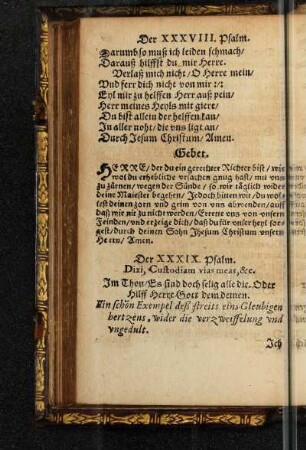 Der XXXVIII. Psalm.
Darumb so muß ich leiden schmach/
Darauß hilffst du mir Herre.
Verlaß mich nicht/ O Herre mein/
Vnd ferr dich nicht von mir
Eyl mir zu helffen Herr auß pein/
Herr meines Heyls mit giere/
Du bist allein der helffen kan/
In aller noht/ die vns ligt an/
Durch Jesum Christum/ Amen.
Gebet.
HERRE/ der du ein gerechter Richter bist/ wie
wol du erhebliche vrsachen gnug hast/ mit vns
zu zürnen/ wegen der Sünde/ so wir täglich wider
deine Maiestet begehen/ Jedoch bitten wir/ du wol
lest deinen zorn vnd grim von vns abwenden/ auff
daß wir nit zu nicht werden/ Errette vns von vnsern
Feinden/ vnd erzeige dich/ daß du für vnser heyl sor-
gest/ durch deinen Sohn Jhesum Christum vnsern
Herrn/ Amen.
Der XXXIX. Psalm.
Dixi, Custodiam vias meas, &c.
Im Thon/ Es sind doch selig alle die. Oder
Hilff Herre Gott dem deinen.
Ein schön Exempel deß streits eins Gleubigen
hertzens, wider die verzweiffelung vnd
vngedult.
Ich